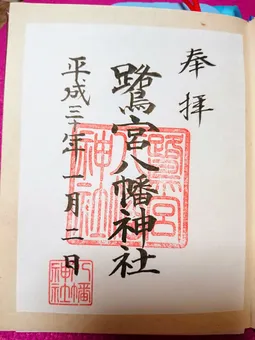 奉拝
鷺宮八幡神社
平成三十年一月二日
鷺宮
八幡
神社
八幡
神社